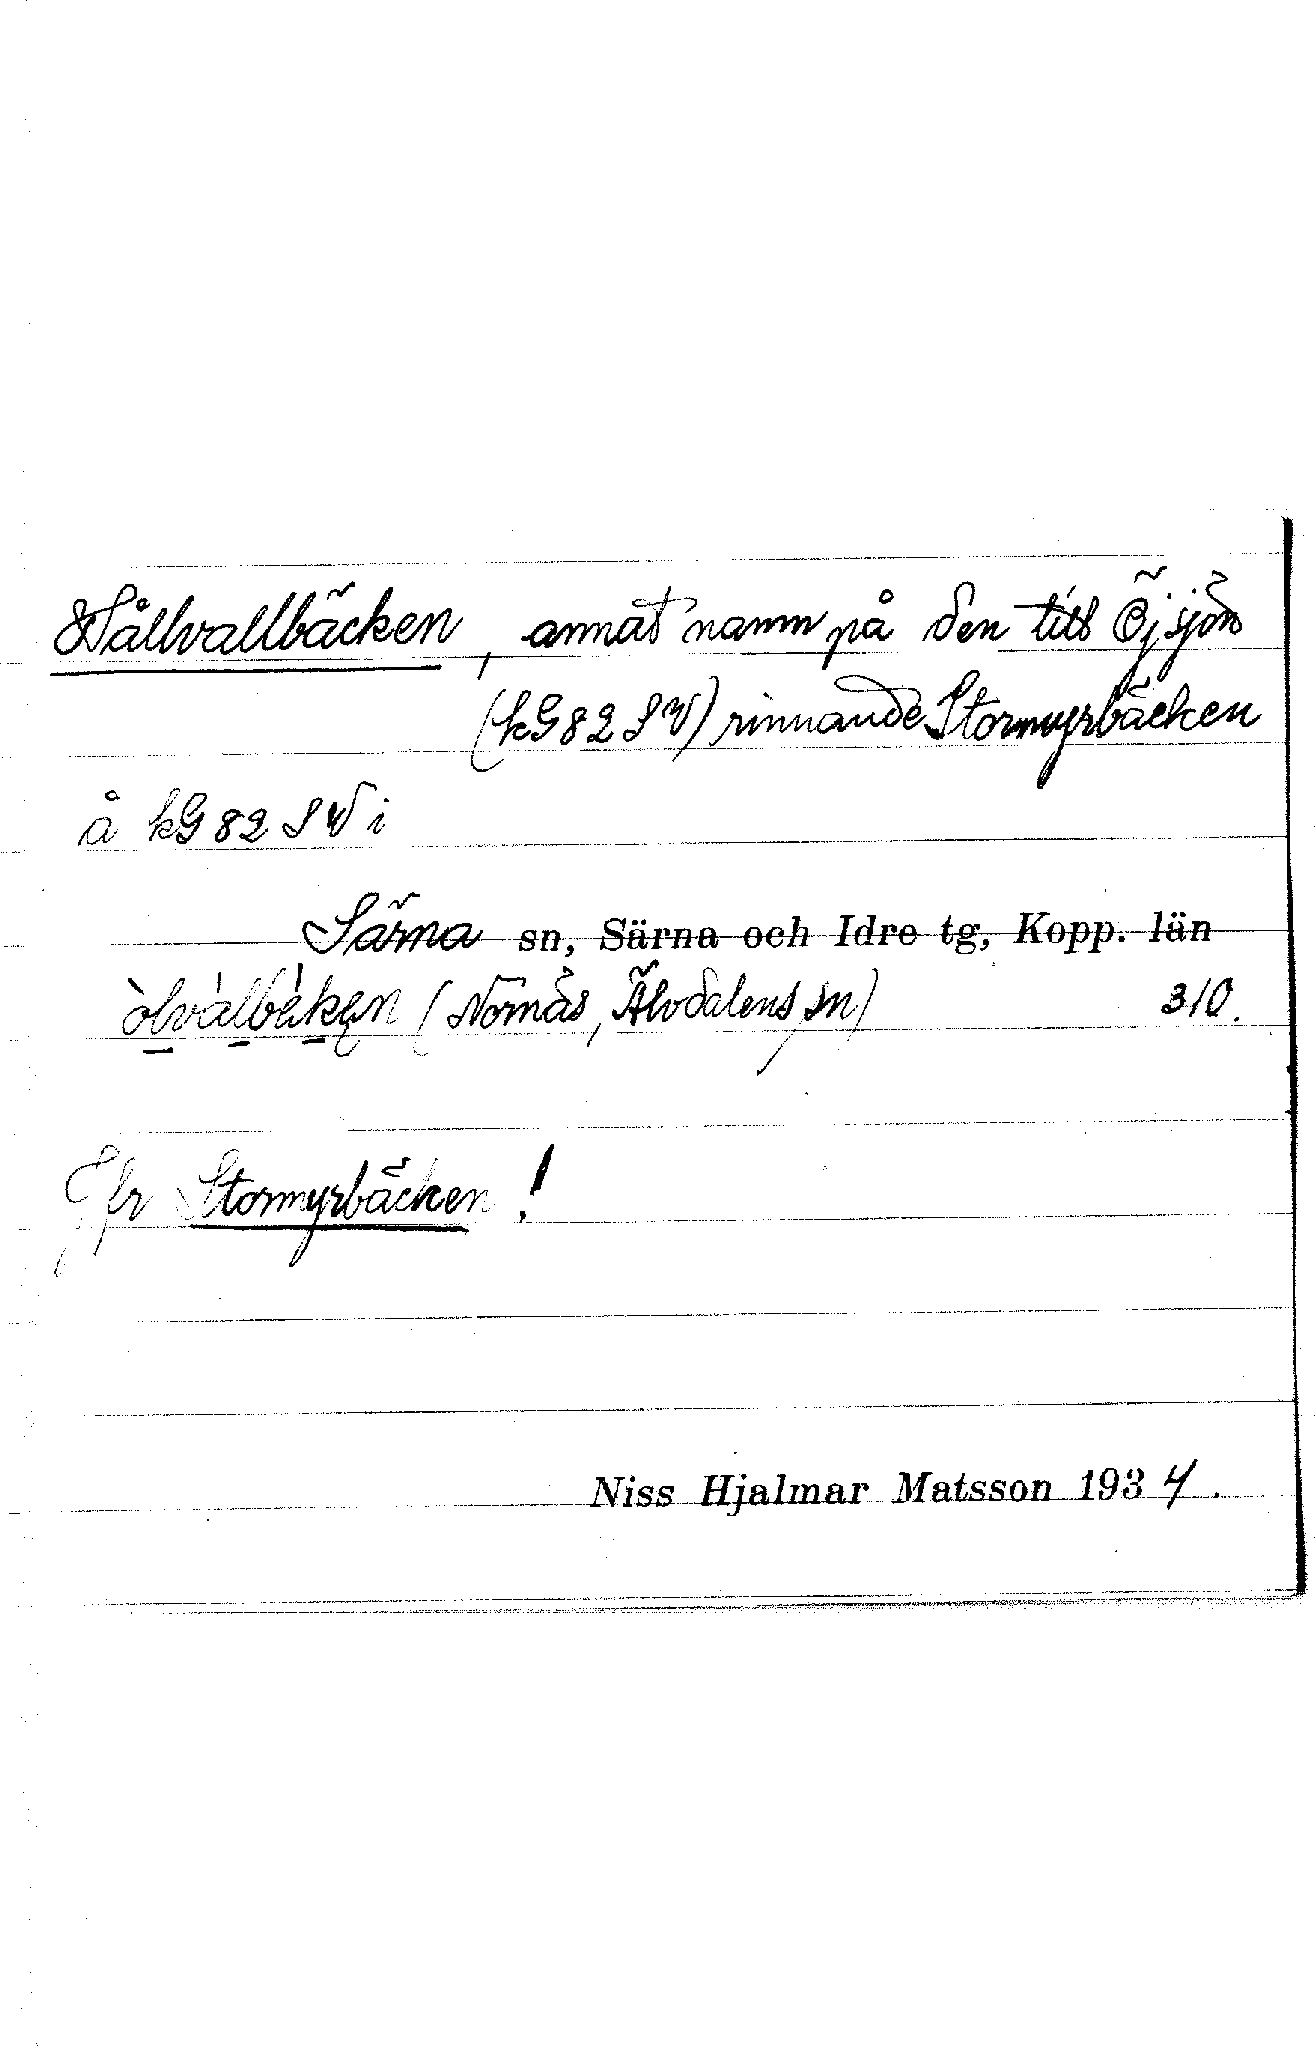 Hållvallbäcken, annat namn på den till Öjsjön
(kG82SW) rinnande Stormyrbäcken
å kG82SW i
Särna sn, Särna och Idre tg, Kopp. län
(Nornäs, Älvdalens sn) 310.
Jfr Stormyrbäcken!
Niss Hjalmar Matsson 1934.